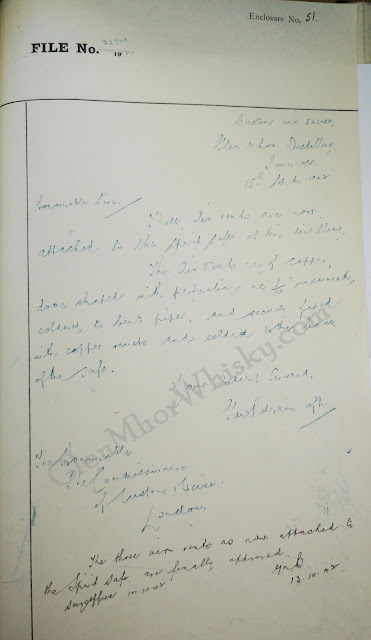 Enclosure No. 51.
FILE No.
19
Customs and Excise,
Glen Mhor Distillery,
Inverness.
15th Sept. 1942
Honourable Sirs,
Three air vents are now
attached to the spirit safe at this distillery.
The air vents are of copper,
dome shaped with perforations underneath,
soldered to bent pipes, and securely fixed
with copper rivets and solder to the
of the safe.
Your obedient Servant,
The Honourable
The Commissioners
of Customs & Excise.
London.
The three air vents as now attached to
the Spirit Safe are finally approved.
12.10.42
GlenMhorWhisky.com